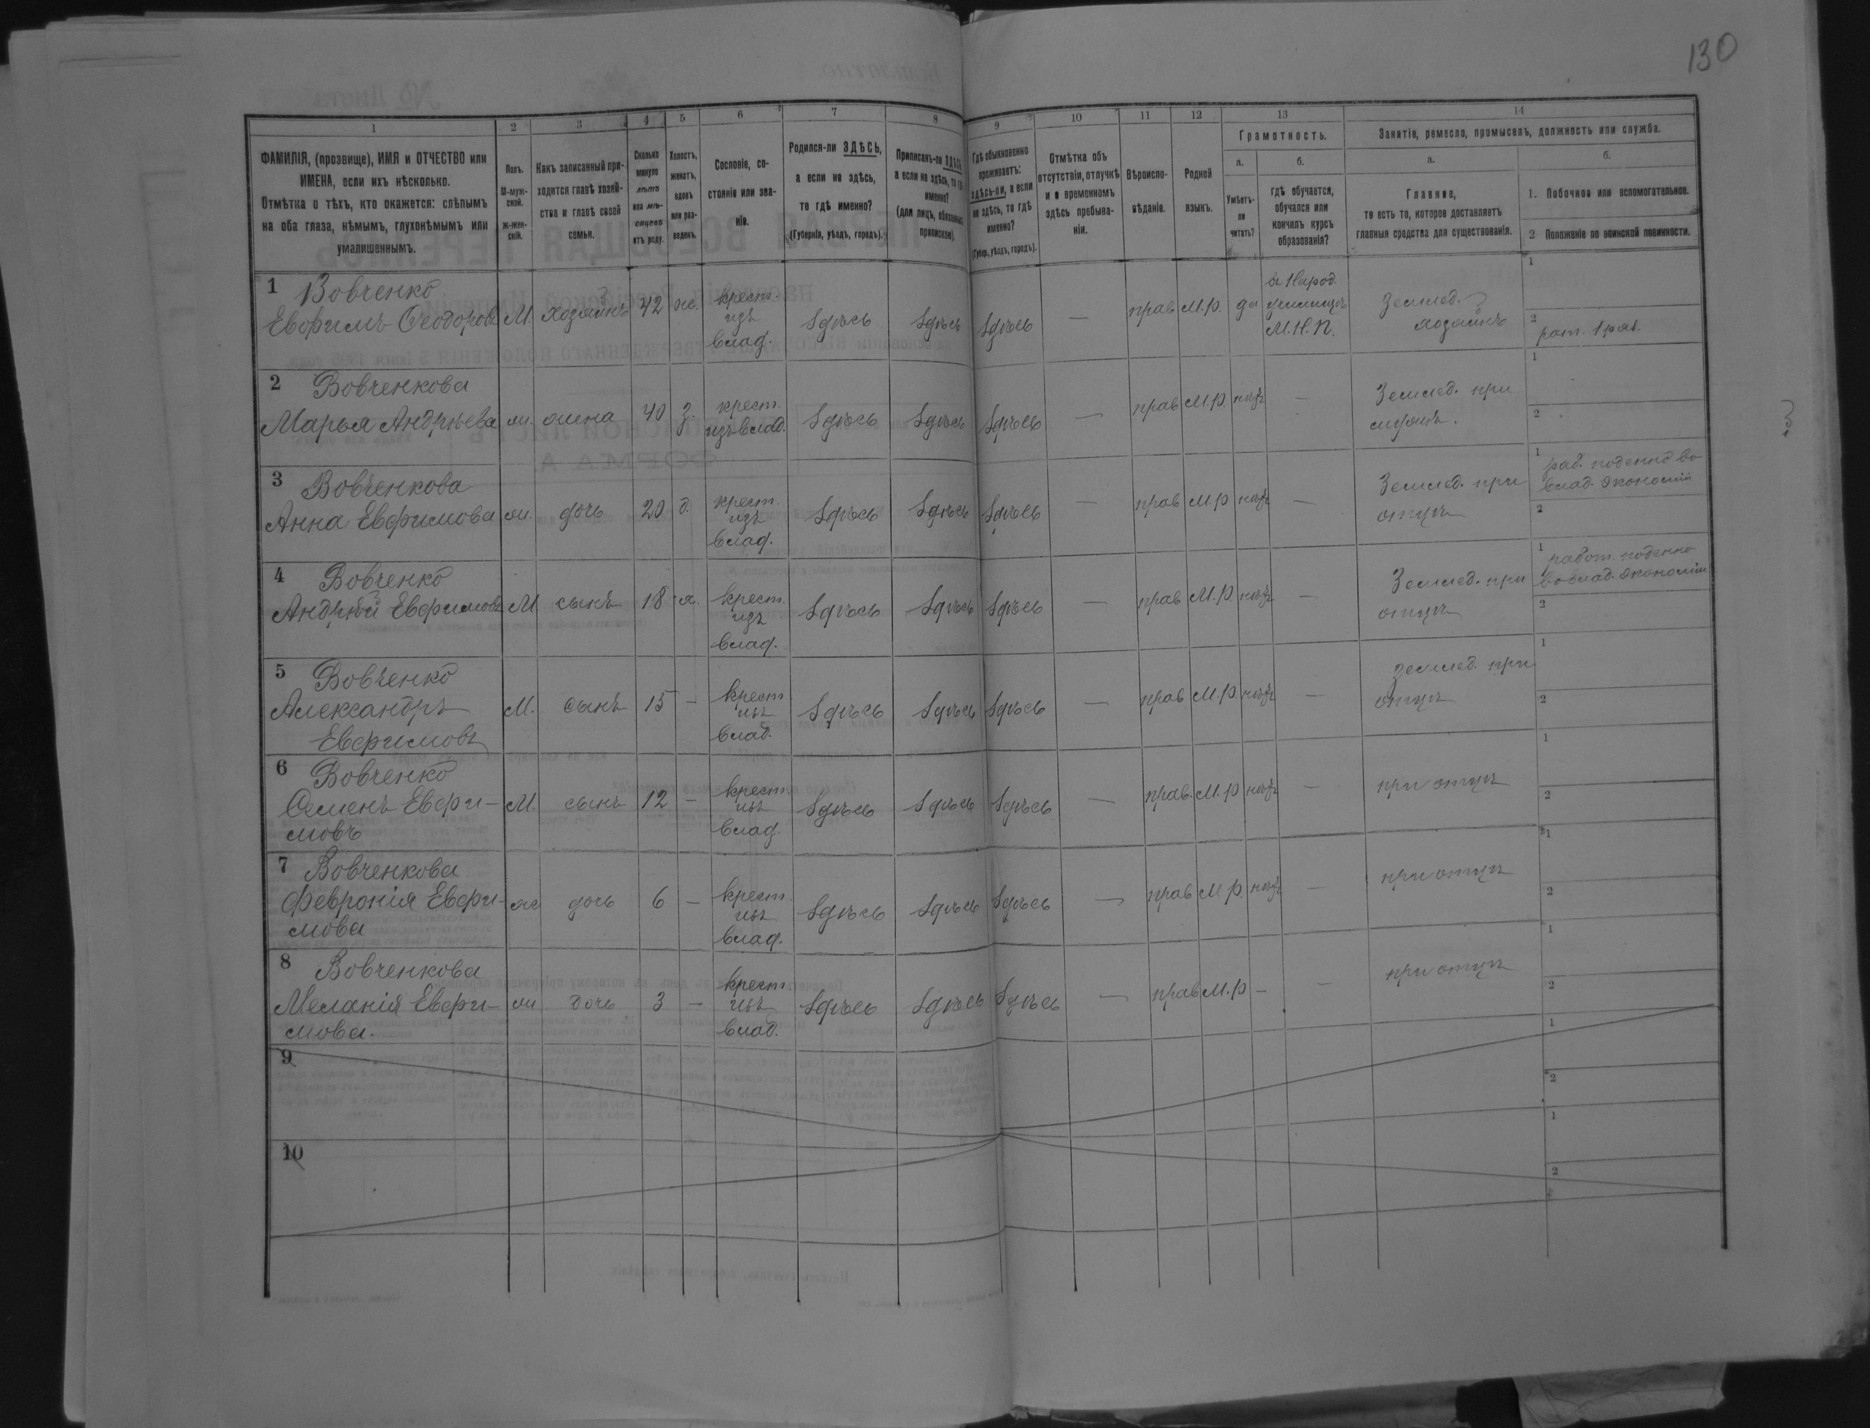 130
1 2 3 4 5 6 7 8 9 10 11 12 13 14
ФАМИЛІЯ, (прозвище), ИМЯ и ОТЧЕСТВО или
ИМЕНА, если ихъ нѣсколько.
Отмѣтка о тѣхъ, кто окажется: слѣпымъ
на оба глаза, нѣмымъ, глухонѣмымъ или
умалишеннымъ.
Полъ.
М-муж-
ской.
Ж-жен-
скій.
Какъ записанный при-
ходится главѣ хозяй-
ства и главѣ своей
семьи.
Сколько
минуло
лѣтъ
или мѣ-
сяцевъ
отъ роду.
Холостъ,
женатъ,
вдовъ
или раз-
веденъ.
Сословіе, со-
стояніе или зва-
ніе.
Родился-ли ЗДѢСЬ,
а если не здѣсь,
то гдѣ именно?
(Губернія, уѣздъ, городъ).
Приписанъ-ли ЗДѢСЬ,
а если не здѣсь, то гдѣ
именно?
(для лицъ, обязанныхъ
припискою).
Гдѣ обыкновенно
проживаетъ:
здѣсь-ли, а если
не здѣсь, то гдѣ
именно?
(Губер., уѣздъ, городъ).
Отмѣтка объ
отсутствіи, отлучкѣ
и о временномъ
здѣсь пребыва-
ніи.
Вѣроиспо-
вѣданіе.
Родной
языкъ.
Грамотность.
а.
Умѣетъ-
ли
читать?
б.
гдѣ обучается,
обучался или
кончилъ курсъ
образованія?
Занятіе, ремесло, промыселъ, должность или служба.
а.
Главное,
то есть то, которое доставляетъ
главныя средства для существованія.
б.
1. Побочное или вспомогательное.
2 Положеніе по воинской повинности.
1 Вовченко
Евфимъ Ѳеодоровъ М. хозяинъ 42 ж. крест. изъ влад. здѣсь здѣсь здѣсь — прав. М.р. да въ Народ. училищѣ М.Н.П. Землед. хозяинъ 1 2 рат. 1 раз.
2 Вовченкова
Марья Андрѣева ж. жена 40 з. крест. изъ влад. здѣсь здѣсь здѣсь — прав М.р нѣтъ — Землед. при мужѣ. 1 2
3 Вовченкова
Анна Евфимова ж. дочь 20 д. крест. изъ влад. здѣсь здѣсь здѣсь — прав М.р нѣтъ — Землед. при отцѣ 1 раб. поденно во влад. экономіи 2
4 Вовченко
Андрѣй Евфимовъ М сынъ 18 х. крест. изъ влад. здѣсь здѣсь здѣсь — прав М.р нѣтъ — Землед. при отцѣ 1 работ. поденно во влад. экономіи 2
5 Вовченко
Александръ
Евфимовъ М. сынъ 15 — крест изъ влад. здѣсь здѣсь здѣсь — прав М.р нѣтъ — землед. при отцѣ 1 2
6 Вовченко
Семенъ Евфи-
мовъ М. сынъ 12 — крест. изъ влад. здѣсь здѣсь здѣсь — прав. М.р нѣтъ — при отцѣ 1 2
7 Вовченкова
Февронія Евфи-
мова ж дочь 6 — крест. изъ влад. здѣсь здѣсь здѣсь — прав М.р. нѣтъ — при отцѣ 1 2
8 Вовченкова
Меланія Евфи-
мова. ж дочь 3 — крест. изъ влад. здѣсь здѣсь здѣсь — прав М.р — — при отцѣ 1 2
9 1 2
10 1 2